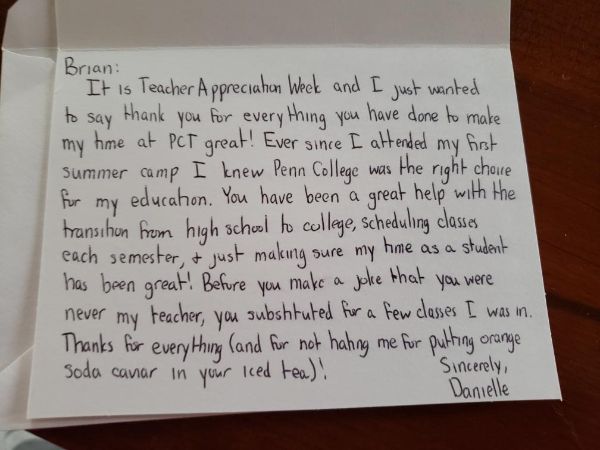 Brian:
It is Teacher Appreciation Week and I just wanted
to say thank you for everything you have done to make
my time at PCT great! Ever since I attended my first
summer camp I knew Penn College was the right choice
for my education. You have been a great help with the
transition from high school to college, scheduling classes
each semester, + just making sure my time as a student
has been great! Before you make a joke that you were
never my teacher, you substituted for a few classes I was in.
Thanks for everything (and for not hating me for putting orange
soda caviar in your iced tea)!
Sincerely,
Danielle